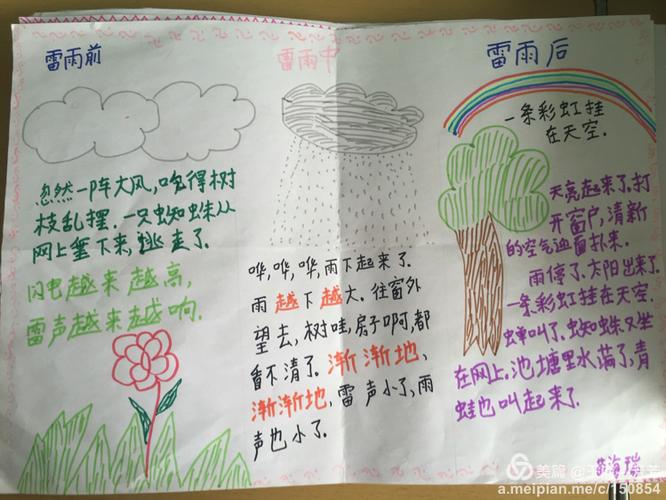 雷雨前
忽然一阵大风,吹得树
枝乱摆.一只蜘蛛从
网上垂下来,逃走了.
闪电越来越高,
雷声越来越响.
雷雨中
哗,哗,哗,雨下起来了.
雨越下越大.往窗外
望去,树哇,房子啊,都
看不清了.渐渐地、
渐渐地、雷声小了,雨
声也小了.
雷雨后
一条彩虹挂
在天空.
天亮起来了.打
开窗户,清新
的空气迎面扑来.
雨停了.太阳出来了.
一条彩虹挂在天空.
蝉叫了.蜘蛛又坐
在网上.池塘里水满了,青
蛙也叫起来了.
海瑞
美篇
a.meipian.me/c/150854